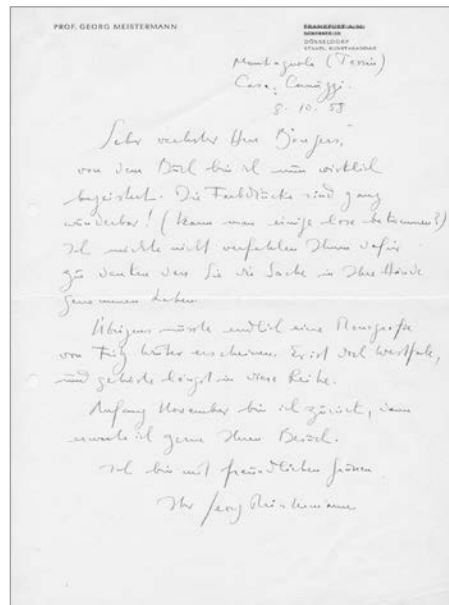 PROF. GEORG MEISTERMANN
FRANKFURT A. M.
DÜSSELDORF
STAATL. KUNSTAKADEMIE
Montagnola (Tessin)
Casa Camuzzi.
8. 10. 58
Sehr verehrter Herr Bongers,
von dem Buch bin ich nun wirklich
begeistert. Die Farbdrucke sind ganz
wunderbar! (Kann man einige lose bekommen?)
Ich möchte nicht verfehlen Ihnen dafür
zu danken dass Sie die Sache in Ihre Hände
genommen haben.
Übrigens müsste endlich eine Monografie
von Fritz Winter erscheinen. Er ist doch Westfale,
und gehörte längst in diese Reihe.
Anfang November bin ich zurück, dann
erwarte ich gerne Ihren Besuch.
Ich bin mit freundlichen Grüssen
Ihr Georg Meistermann